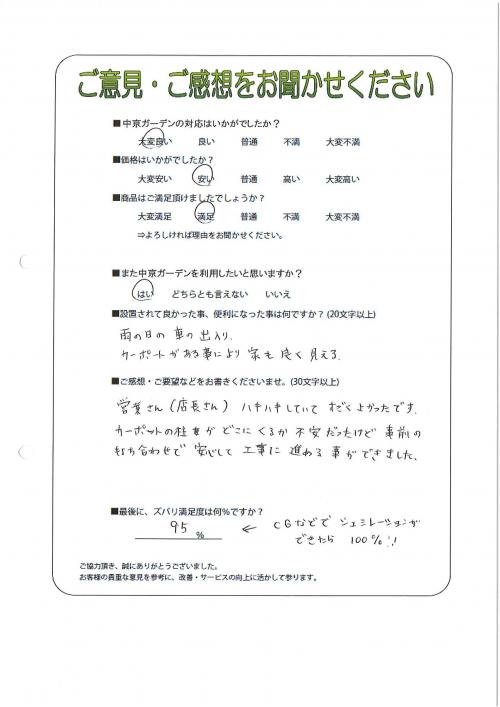 ご意見・ご感想をお聞かせください
■中京ガーデンの対応はいかがでしたか？
大変良い 良い 普通 不満 大変不満
■価格はいかがでしたか？
大変安い 安い 普通 高い 大変高い
■商品はご満足頂けましたでしょうか？
大変満足 満足 普通 不満 大変不満
⇒よろしければ理由をお聞かせください。
■また中京ガーデンを利用したいと思いますか？
はい どちらとも言えない いいえ
■設置されて良かった事、便利になった事は何ですか？(20文字以上)
雨の日の車の出入り.
カーポートがある事により家も良く見える.
■ご感想・ご要望などをお書きくださいませ。(30文字以上)
営業さん(店長さん)ハキハキしていてすごくよかったです.
カーポートの柱がどこにくるか不安だったけど事前の
打ち合わせで安心して工事に進める事ができました.
■最後に、ズバリ満足度は何%ですか？
95 % ← CGなどでシュミレーションが
できたら 100%!!
ご協力頂き、誠にありがとうございました。
お客様の貴重な意見を参考に、改善・サービスの向上に活かして参ります。